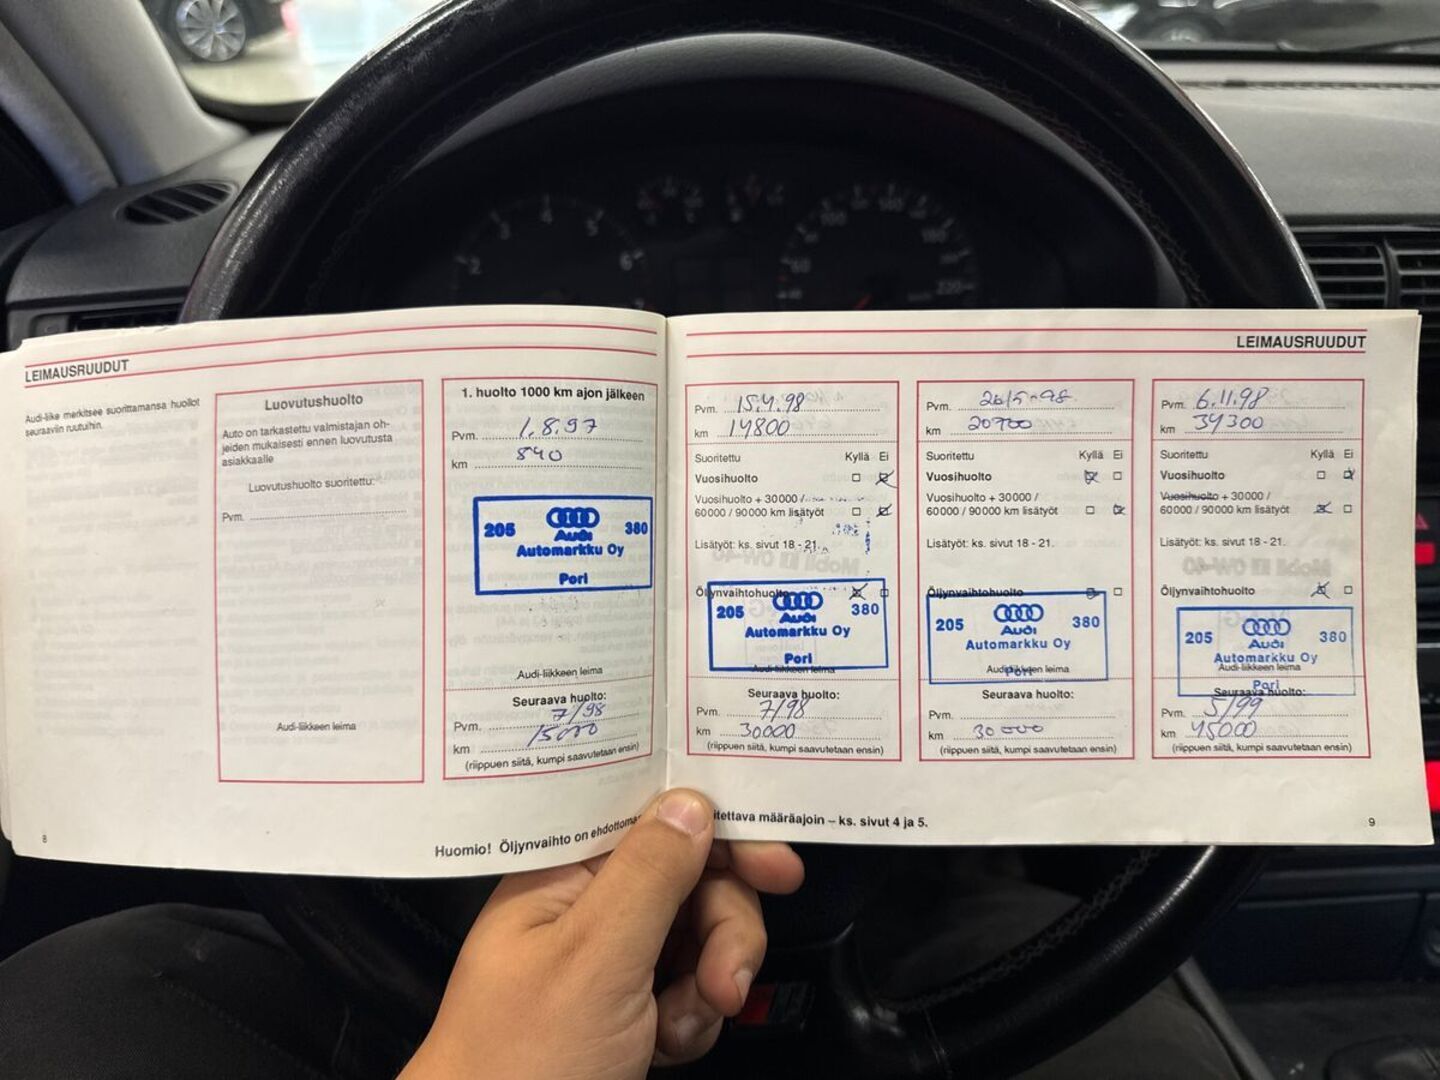 LEIMAUSRUUDUT
Audi-liike merkitsee suorittamansa huollot
seuraaviin ruutuihin.
Luovutushuolto
Auto on tarkastettu valmistajan oh-
jeiden mukaisesti ennen luovutusta
asiakkaalle
Luovutushuolto suoritettu:
Pvm.
Audi-liikkeen leima
8
1. huolto 1000 km ajon jälkeen
Pvm. 1.8.97
km 840
205 Audi 380
Automarkku Oy
Pori
Audi-liikkeen leima
Seuraava huolto:
Pvm. 7/98
km 15000
(riippuen siitä, kumpi saavutetaan ensin)
Huomio! Öljynvaihto on
LEIMAUSRUUDUT
Pvm. 15.4.98
km 14800
Suoritettu Kyllä Ei
Vuosihuolto
Vuosihuolto + 30000 /
60000 / 90000 km lisätyöt
Lisätyöt: ks. sivut 18 - 21.
Öljynvaihtohuolto
205 Audi 380
Automarkku Oy
Pori
Audi-liikkeen leima
Seuraava huolto:
Pvm. 7/98
km 30000
(riippuen siitä, kumpi saavutetaan ensin)
Pvm.
km 20700
Suoritettu Kyllä Ei
Vuosihuolto
Vuosihuolto + 30000 /
60000 / 90000 km lisätyöt
Lisätyöt: ks. sivut 18 - 21.
Öljynvaihtohuolto
205 Audi 380
Automarkku Oy
Pori
Audi-liikkeen leima
Seuraava huolto:
Pvm.
km 30000
(riippuen siitä, kumpi saavutetaan ensin)
Pvm. 6.11.98
km 34300
Suoritettu Kyllä Ei
Vuosihuolto
Vuosihuolto + 30000 /
60000 / 90000 km lisätyöt
Lisätyöt: ks. sivut 18 - 21.
Öljynvaihtohuolto
205 Audi 380
Automarkku Oy
Pori
Audi-liikkeen leima
Seuraava huolto:
Pvm. 5/99
km 45000
(riippuen siitä, kumpi saavutetaan ensin)
määräajoin – ks. sivut 4 ja 5.
9